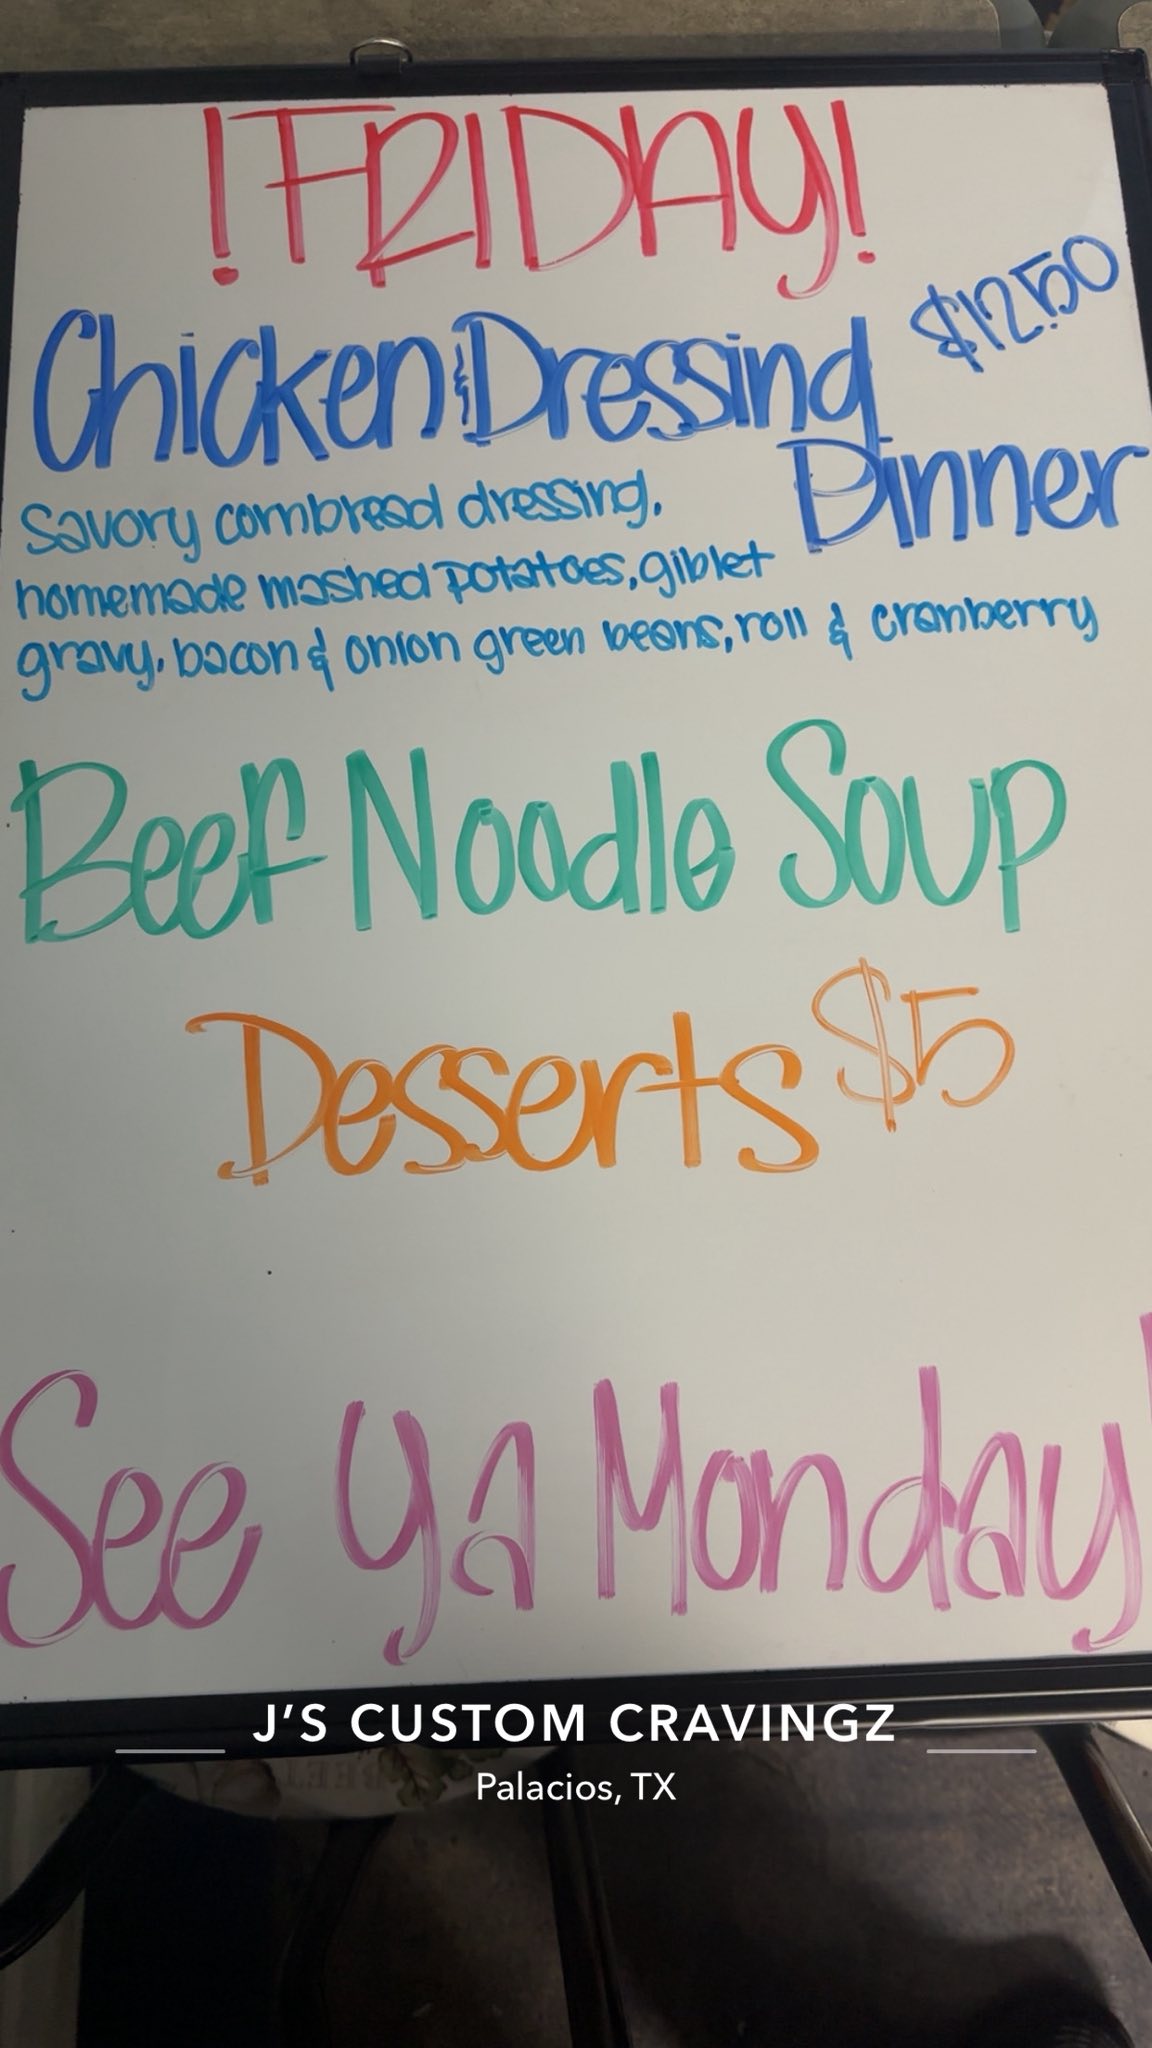 !FRIDAY!
$12.50
Chicken & Dressing
Dinner
Savory cornbread dressing,
homemade mashed potatoes, giblet
gravy, bacon & onion green beans, roll & cranberry
Beef Noodle Soup
Desserts $5
See Ya Monday!
J'S CUSTOM CRAVINGZ
Palacios, TX